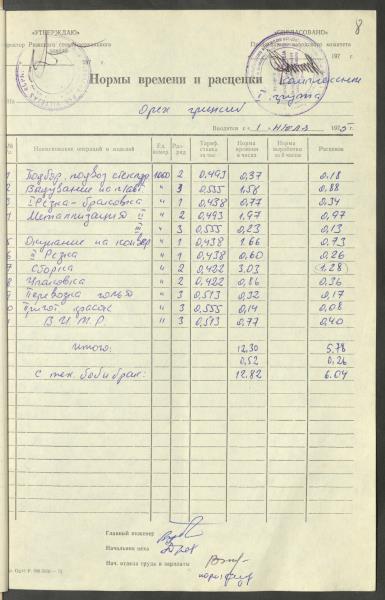 8
«УТВЕРЖДАЮ»
«СОГЛАСОВАНО»
197 г.
197 г.
Нормы времени и расценки
На Орех грецкий
Вводятся с „1 июля 197 г.
№
Наименование операций и изделий
Ед. измер.
Разряд
Тариф. ставка за час
Норма времени в часах
Норма выработки за 8 часов
Расценок
1 Подбор, подвоз стеклодр 1000 2 0,493 0,37 0,18
2 Выдувание " 3 0,555 1.58 0,88
3 I Резка-браковка " 1 0,438 0,77 0,34
4 Металлизация II " 2 0,493 1,97 0,97
III " 3 0,555 0,23 0,13
5 Окунание на " 1 0,438 1.66 0,73
6 II Резка " 1 0,438 0.60 0,26
7 Сборка " 2 0,422 3.03 1.28
8 Упаковка " 2 0,422 0,86 0,36
9 Перевозка " 3 0,513 0,32 0,17
0 Пригот. красок " 3 0,555 0,14 0,08
В И М Р " 3 0,513 0,77 0,40
Итого: 12,30 5,78
0,52 0,26
С тех. боя и брак: 12.82 6.04
Главный инженер
Начальник цеха
Нач. отдела труда и зарплаты